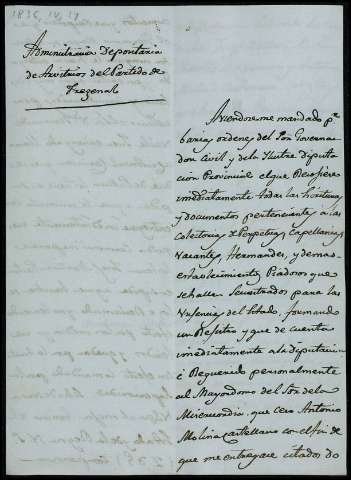 1836, IV, 19
Administracion Depositaria
de Arvitrios del Partido de
Fregenal
Aviendose me mandado pr
barias ordenes del Sor Governa
dor Civil y de la Ilustre Diputa
cion Provincial el que Recojiere
imediatamente todas las Escrituras
y documentos pertenecientes a las
Colecturias de Perpetuas, Capellanias
Vacantes, Hermandes, y demas
establecimientos Piadosos que
se hallan Secuestrados para las
Vrgencias del Estado, formando
un Registro y que de cuenta
imediatamente a la diputacion
é Requerido personalmente
al Mayordomo del Sor de la
Misericordia que es Antonio
Molina Castellano con el fin de
que me entregase citados do